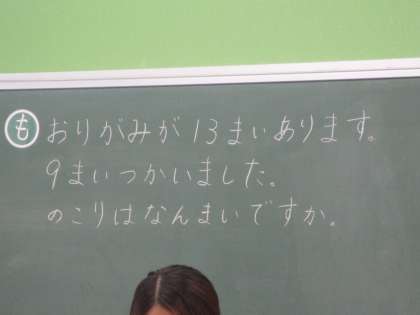 も おりがみが13まいあります。
9まいつかいました。
のこりはなんまいですか。